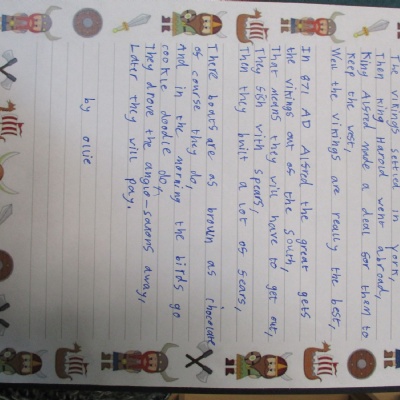 The vikings settled in York,
Then King Harold went abroad,
King Alfred made a deal for them to
keep the west,
Well the vikings are really the best,
In 871 AD Alfred the great gets
the vikings out of the South,
That means they will have to get out,
They fish with spears,
Then they built a lot of gears,
There boats are as brown as chocolate
of course they do,
And in the morning the birds go
cookle doodle do,
They drove the anglo-saxons away,
Later they will pay.
by ollie